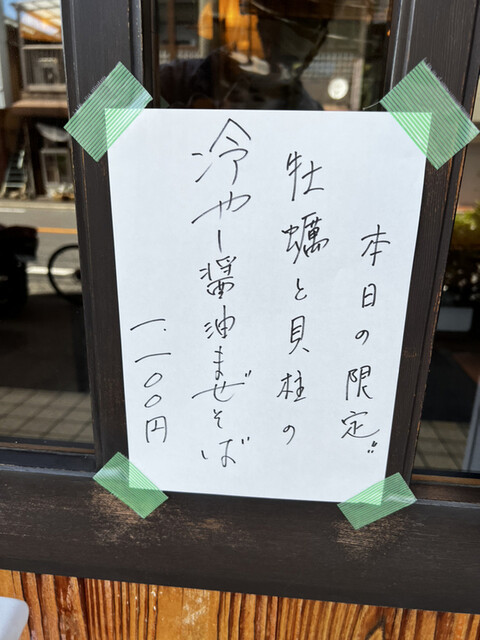 本日の限定〃
牡蠣と貝柱の
冷やし醤油まぜそば
一.一〇〇円